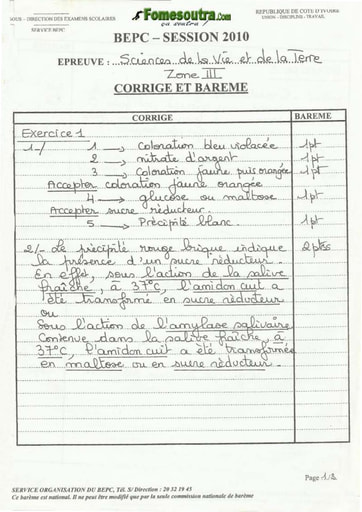 Fomesoutra.com
ça soutra !
DOUS – DIRECTION DES EXAMENS SCOLAIRES
SERVICE BEPC
REPUBLIQUE DE COTE D'IVOIRE
UNION – DISCIPLINE - TRAVAIL
BEPC – SESSION 2010
EPREUVE : Sciences de la Vie et de la Terre
Zone III
CORRIGE ET BAREME
CORRIGE
BAREME
Exercice 1
1-/ 1 → Coloration bleu violacée 1pt
2 → nitrate d'argent 1pt
3 → Coloration jaune puis orangée 1pt
Accepter coloration jaune orangée
4 → glucose ou maltose 1pt
Accepter sucre réducteur.
5 → Précipité blanc. 1pt
2/- Le précipité rouge brique indique 2pts
la présence d'un sucre réducteur.
En effet, sous l'action de la salive
fraîche, à 37°C, l'amidon cuit a
été transformé en sucre réducteur
ou
Sous l'action de l'amylase salivaire
Contenue dans la salive fraîche, à
37°C, l'amidon cuit a été transformé
en maltose ou en sucre réducteur.
Page 1/2
SERVICE ORGANISATION DU BEPC, Tél. S/ Direction : 20 32 19 45
Ce barème est national. Il ne peut être modifié que par la seule commission nationale de barème